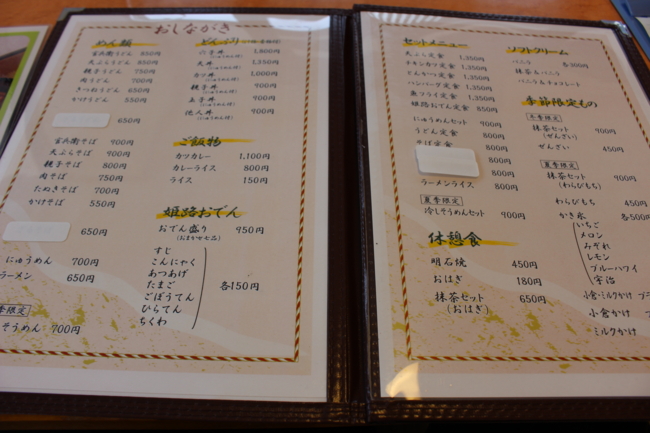 おしながき
めん類
官兵衛うどん 850円
天ぷらうどん 850円
親子うどん 750円
肉うどん 700円
きつねうどん 600円
かけうどん 550円
650円
官兵衛そば 900円
天ぷらそば 900円
親子そば 800円
肉そば 750円
たぬきそば 700円
かけそば 550円
650円
にゅうめん 700円
ラーメン 650円
そうめん 700円
どんぶり
1,800円
天丼 1,350円
カツ丼 1,000円
親子丼 900円
玉子丼 900円
他人丼 900円
ご飯物
カツカレー 1,100円
カレーライス 800円
ライス 150円
姫路おでん
おでん盛り 950円
(おまかせ七品)
すじ
こんにゃく
あつあげ
たまご
ごぼうてん
ひらてん
ちくわ
各150円
セットメニュー
天ぷら定食 1,350円
チキンカツ定食 1,350円
とんかつ定食 1,350円
ハンバーグ定食 1,350円
魚フライ定食 1,350円
姫路おでん定食 850円
にゅうめんセット 900円
うどん定食 800円
そば定食 900円
800円
900円
ラーメンライス 800円
夏季限定
冷しそうめんセット 900円
休憩食
明石焼 450円
おはぎ 180円
抹茶セット 650円
(おはぎ)
ソフトクリーム
バニラ 各300円
抹茶&バニラ
バニラ&チョコレート
季節限定もの
冬季限定
抹茶セット 900円
(ぜんざい)
ぜんざい 450円
夏季限定
抹茶セット 900円
(わらびもち)
わらびもち 450円
かき氷 各500円
いちご
メロン
みぞれ
レモン
ブルーハワイ
宇治
小倉・ミルクかけ
小倉かけ
ミルクかけ